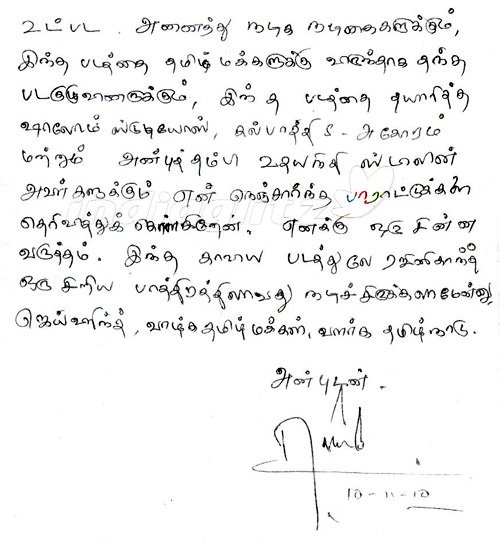 உட்பட அனைத்து நடிக நடிகைகளுக்கும்,
இந்த படத்தை தமிழ் மக்களுக்கு விருந்தாக தந்த
படகுழுவினருக்கும், இந்த படத்தை தயாரித்த
ஷாலோம் ஸ்டுடியோஸ், கல்பாத்தி S. அகோரம்
மற்றும் அன்புத்தம்பி உதயநிதி ஸ்டாலின்
அவர்களுக்கும் என் நெஞ்சார்ந்த பாராட்டுக்களை
தெரிவித்துக் கொள்கிறேன். எனக்கு ஒரு சின்ன
வருத்தம். இந்த காவிய படத்துல ரஜினிகாந்த்
ஒரு சிறிய பாத்திரத்திலாவது நடிச்சிருக்கலாமேன்னு,
ஜெய்ஹிந்த், வாழ்க தமிழ் மக்கள், வளர்க தமிழ்நாடு.
அன்புடன்.
10-11-10